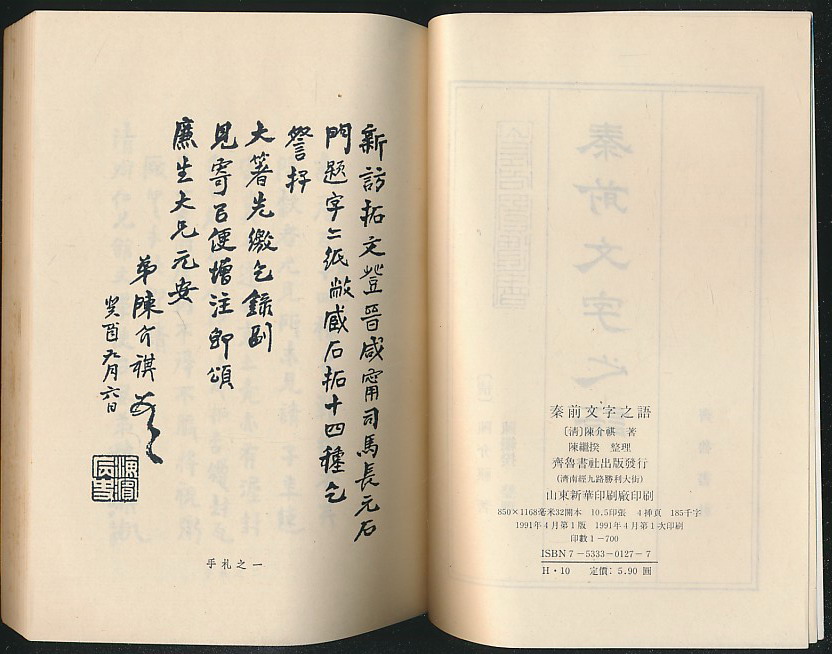 新訪拓文登晉咸甯司馬長元石
門題字二紙敝藏石拓十四種乞
詧
大著先繳乞錄副
見寄以便增注即頌
廉生大兄元安
弟陳介祺
癸酉九月六日
手札之一
秦前文字之語
〔清〕陳介祺 著
陳繼揆 整理
齊魯書社出版發行
(濟南經九路勝利大街)
山東新華印刷廠印刷
850×1168毫米32開本 10.5印張 4插頁 185千字
1991年4月第1版 1991年4月第1次印刷
印數1－700
ISBN7－5333－0127－7
H·10 定價：5.90 圓